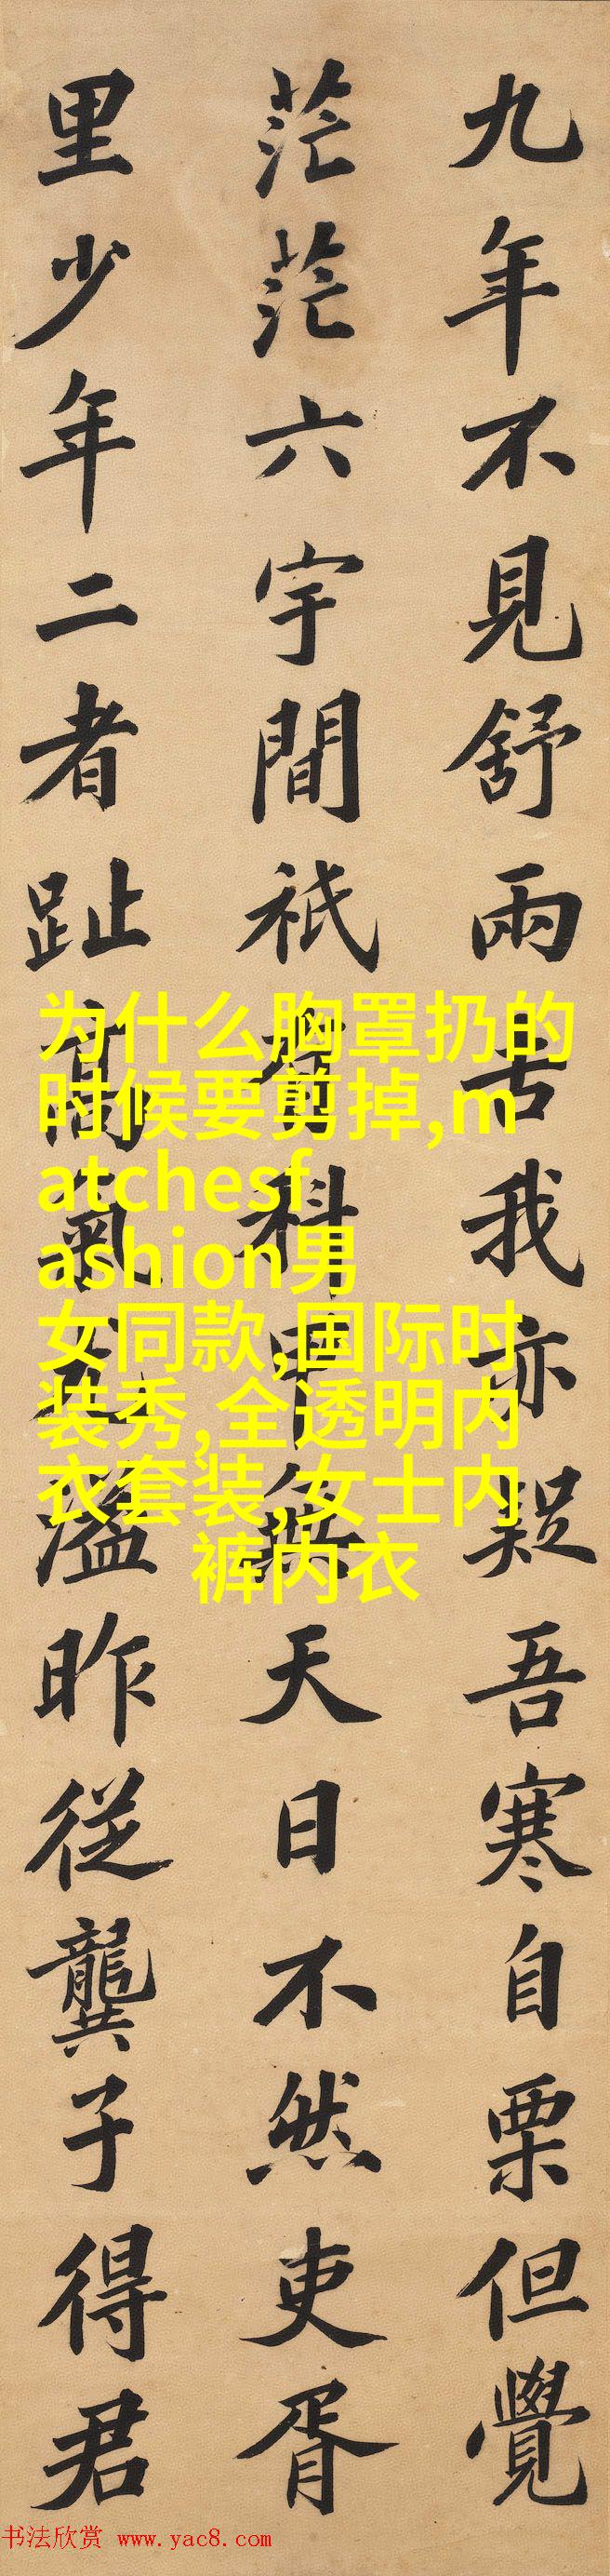 九年不見舒雨吉我亦疑吾寒自栗但覺
茫茫六宇間祇有科甲無天日不然吏胥
里少年二者趾高氣尤溢昨従龔子得君
为什么胸罩扔的
时候要剪掉,m
atchesf
ashion男
女同款,国际时
装秀,全透明内
衣套装,女士内
裤内衣
书法欣赏 www.yac8.com